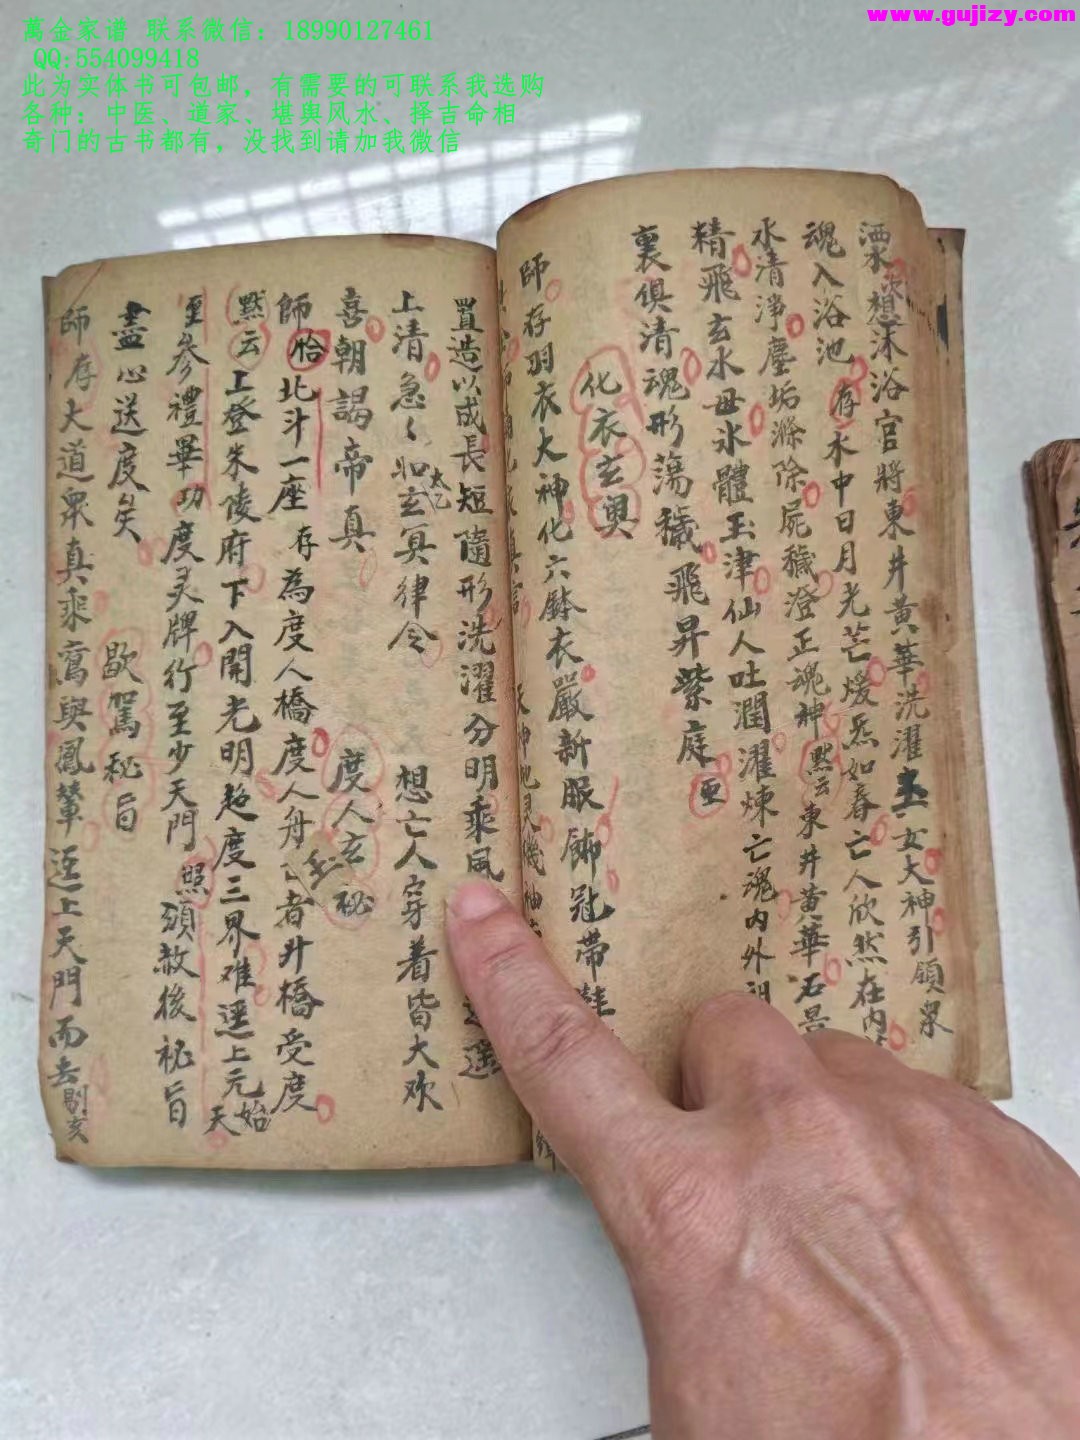 萬金家谱 联系微信：18990127461
QQ:554099418
此为实体书可包邮，有需要的可联系我选购
各种：中医、道家、堪舆风水、择吉命相
奇门的古书都有，没找到请加我微信
www.gujizy.com
洒水次想沐浴官將東井黃華洗濯玉女大神引領眾
魂入浴池 存水中日月光芒煖炁如春亡人欣然在内
水清淨塵垢滌除屍穢澄正魂神 默云東井黃華石景
精飛玄水母氷體玉津仙人吐潤濯煉亡魂内外
裏俱清魂形蕩穢飛昇紫庭
化衣玄奥
師存羽衣大神化六銖衣嚴新服飾冠帶鞋
置造以成長短隨形洗濯分明乘風
上清急〻如太乙玄冥律令 想亡人穿着皆大欢
喜朝謁帝真 度人玄秘
師 北斗一座 存為度人橋度人舟 者升橋受度
默云上登朱陵府下入開光明超度三界难逕上元始天
至參禮畢功度灵牌行至少天門 照頒赦後祕旨
盡心送度矣 歇駕秘旨
師存大道眾真乘鸞與鳳輦逕上天門而去